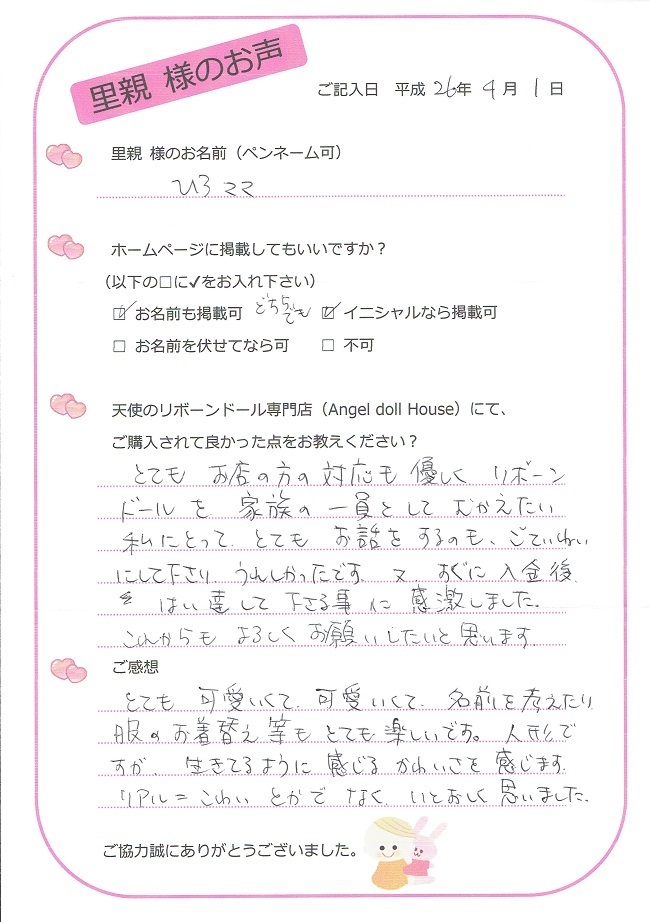 里親 様のお声
ご記入日 平成 26年 4月 1日
里親 様のお名前（ペンネーム可）
ひろママ
ホームページに掲載してもいいですか？
（以下の□に✓をお入れ下さい）
☑ お名前も掲載可 どちらでも ☑ イニシャルなら掲載可
□ お名前を伏せてなら可 □ 不可
天使のリボーンドール専門店（Angel doll House）にて、
ご購入されて良かった点をお教えください？
とても お店の方の対応も 優しく リボーン
ドールを 家族の一員として むかえたい
私にとって とても お話をするのも、ごていねい
にして下さり うれしかったです 又、すぐに 入金後
はい達して 下さる事に 感激しました。
これからも よろしく お願いしたいと思います
ご感想
とても 可愛いくて 可愛いくて 名前を考えたり
服のお着替え等もとても楽しいです。人形で
すが、生きてるように感じる かわいさを感じます
リアル＝こわい とかで なく いとおしく 思いました。
ご協力誠にありがとうございました。